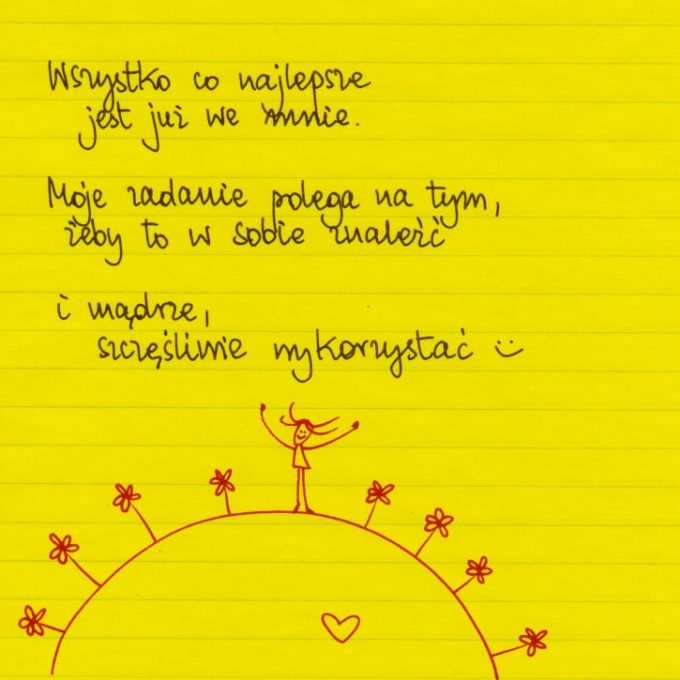 Wszystko co najlepsze
jest już we mnie.
Moje zadanie polega na tym,
żeby to w sobie znaleźć
i mądrze,
szczęśliwie wykorzystać :)